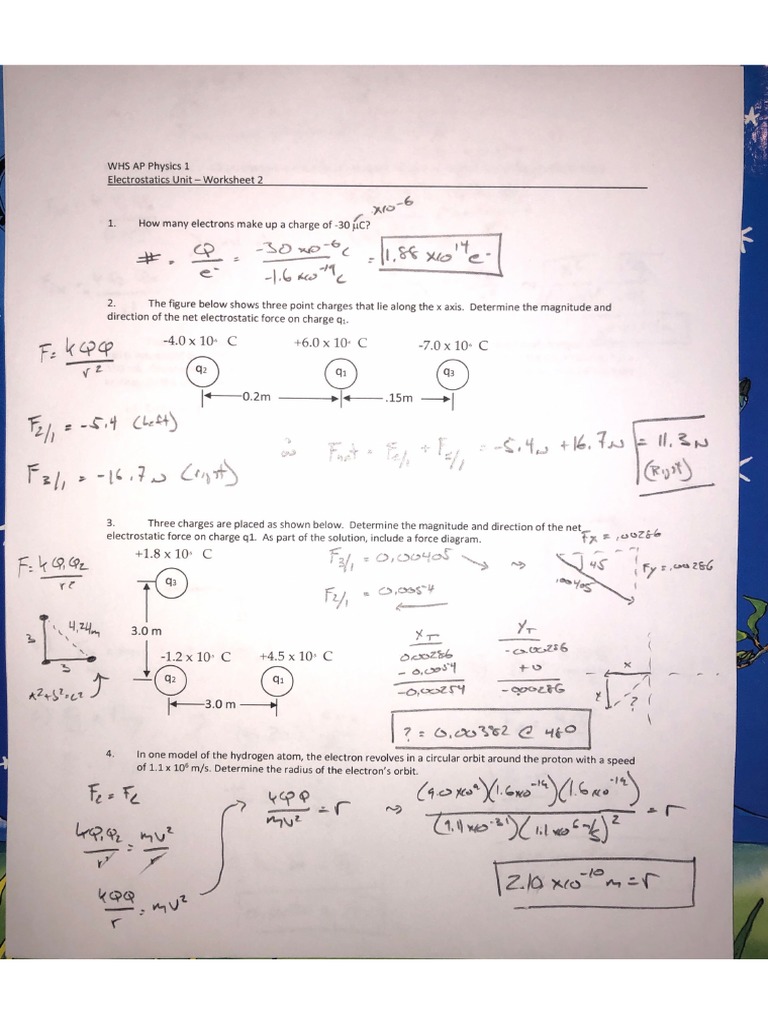 WHS AP Physics 1
Electrostatics Unit – Worksheet 2
x10⁻⁶
1. How many electrons make up a charge of -30 μC?
# = CP/e⁻ = -30 x10⁻⁶ C / -1.6 x10⁻¹⁹ C = 1.88 x10¹⁴ e⁻
2. The figure below shows three point charges that lie along the x axis. Determine the magnitude and
direction of the net electrostatic force on charge q₁.
F = kQQ/r²
-4.0 x 10 C +6.0 x 10 C -7.0 x 10 C
q2 q1 q3
0.2m .15m
F2/1 = -5.4 (Left)
F3/1 = -16.7N (right)
∴ Fnet = + = -5.4N + 16.7N = 11.3N
(Right)
3. Three charges are placed as shown below. Determine the magnitude and direction of the net
electrostatic force on charge q1. As part of the solution, include a force diagram.
Fx = .00286
+1.8 x 10 C
F = kQ₁Q₂/r²
q3
F3/1 = 0.00405
45
.00405
Fy = .00286
F2/1 = 0.0054
4.24m
3
3
3.0 m
-1.2 x 10 C +4.5 x 10 C
q2 q1
3.0 m
XT YT
0.00286 -0.00286
-0.0054 +0
-0.00254 -.000286
x
y
?
? = 0.00382 @ 480
4. In one model of the hydrogen atom, the electron revolves in a circular orbit around the proton with a speed
of 1.1 x 10⁶ m/s. Determine the radius of the electron's orbit.
Fc = Fc
kQ₁Q₂/r² = mv²/r
kQQ/r = mv²
kQQ/mv² = r
(9.0x10⁹)(1.6x10⁻¹⁹)(1.6x10⁻¹⁹) / (9.11x10⁻³¹)(1.1x10⁶ m/s)² = r
2.10 x10⁻¹⁰ m = r